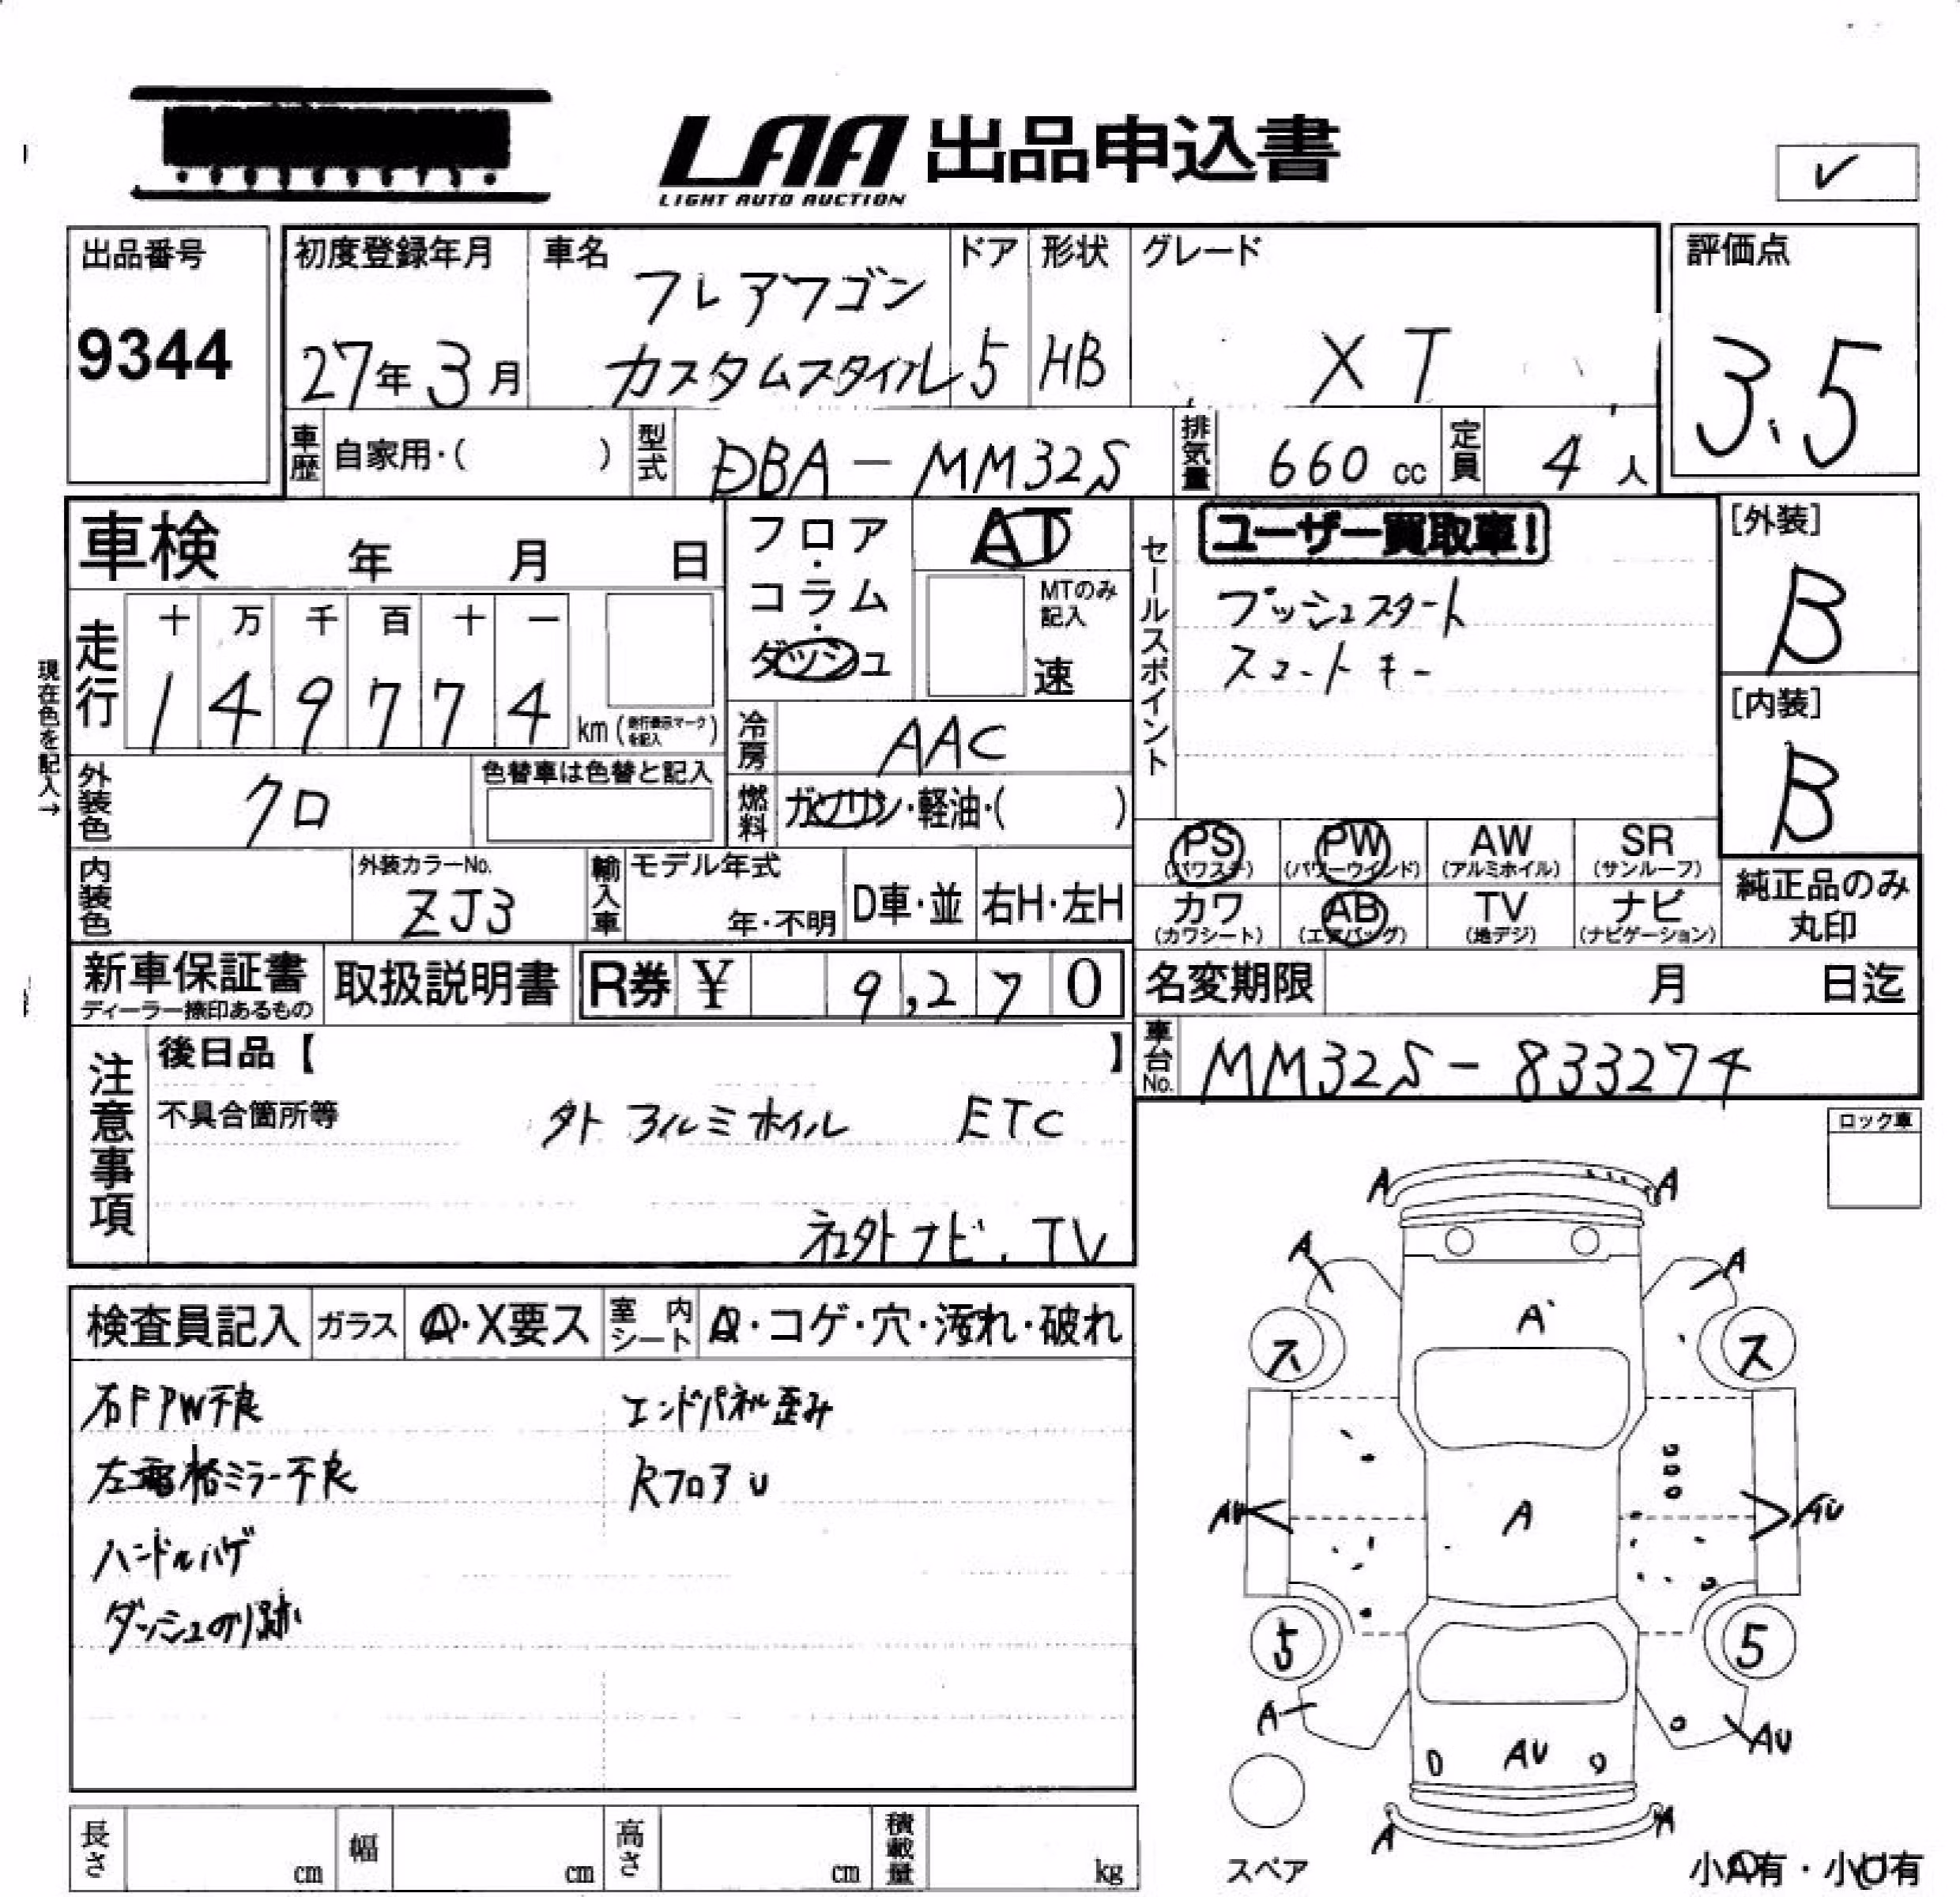 LAA 出品申込書
LIGHT AUTO AUCTION
✓
出品番号
9344
初度登録年月
27年 3月
車名
フレアワゴン
カスタムスタイル
ドア
5
形状
HB
グレード
XT
評価点
3.5
車歴 自家用・( )
型式 DBA-MM32S
排気量 660 cc
定員 4 人
車検 年 月 日
フロア・コラム・ダッシュ
AT
MTのみ記入
速
セールスポイント
ユーザー買取車!
プッシュスタート
スマートキー
[外装]
B
[内装]
B
現在色を記入→
走行
十 万 千 百 十 一
1 4 9 7 7 4 km (走行表示マークを記入)
冷房 AAC
外装色 クロ
色替車は色替と記入
燃料 ガソリン・軽油・( )
PS (パワステ)
PW (パワーウインド)
AW (アルミホイル)
SR (サンルーフ)
カワ (カワシート)
AB (エアバッグ)
TV (地デジ)
ナビ (ナビゲーション)
純正品のみ丸印
内装色
外装カラーNo.
ZJ3
輸入車
モデル年式
年・不明
D車・並
右H・左H
新車保証書
ディーラー捺印あるもの
取扱説明書
R券 ¥ 9,270
名変期限 月 日迄
車台No. MM32S-833274
注意事項
後日品【 】
不具合箇所等
外アルミホイル ETC
社外ナビ、TV
ロック車
検査員記入
ガラス A・X要ス
室内シート A・コゲ・穴・汚れ・破れ
右FPW不良
左電格ミラー不良
ハンドルハゲ
ダッシュのり跡
エンドパネル歪み
RフロアU
A A
A A
A
ス ス
AU A AU
5 5
A AU AU
A A
スペア
小A有・小U有
長さ cm
幅 cm
高さ cm
積載量 kg